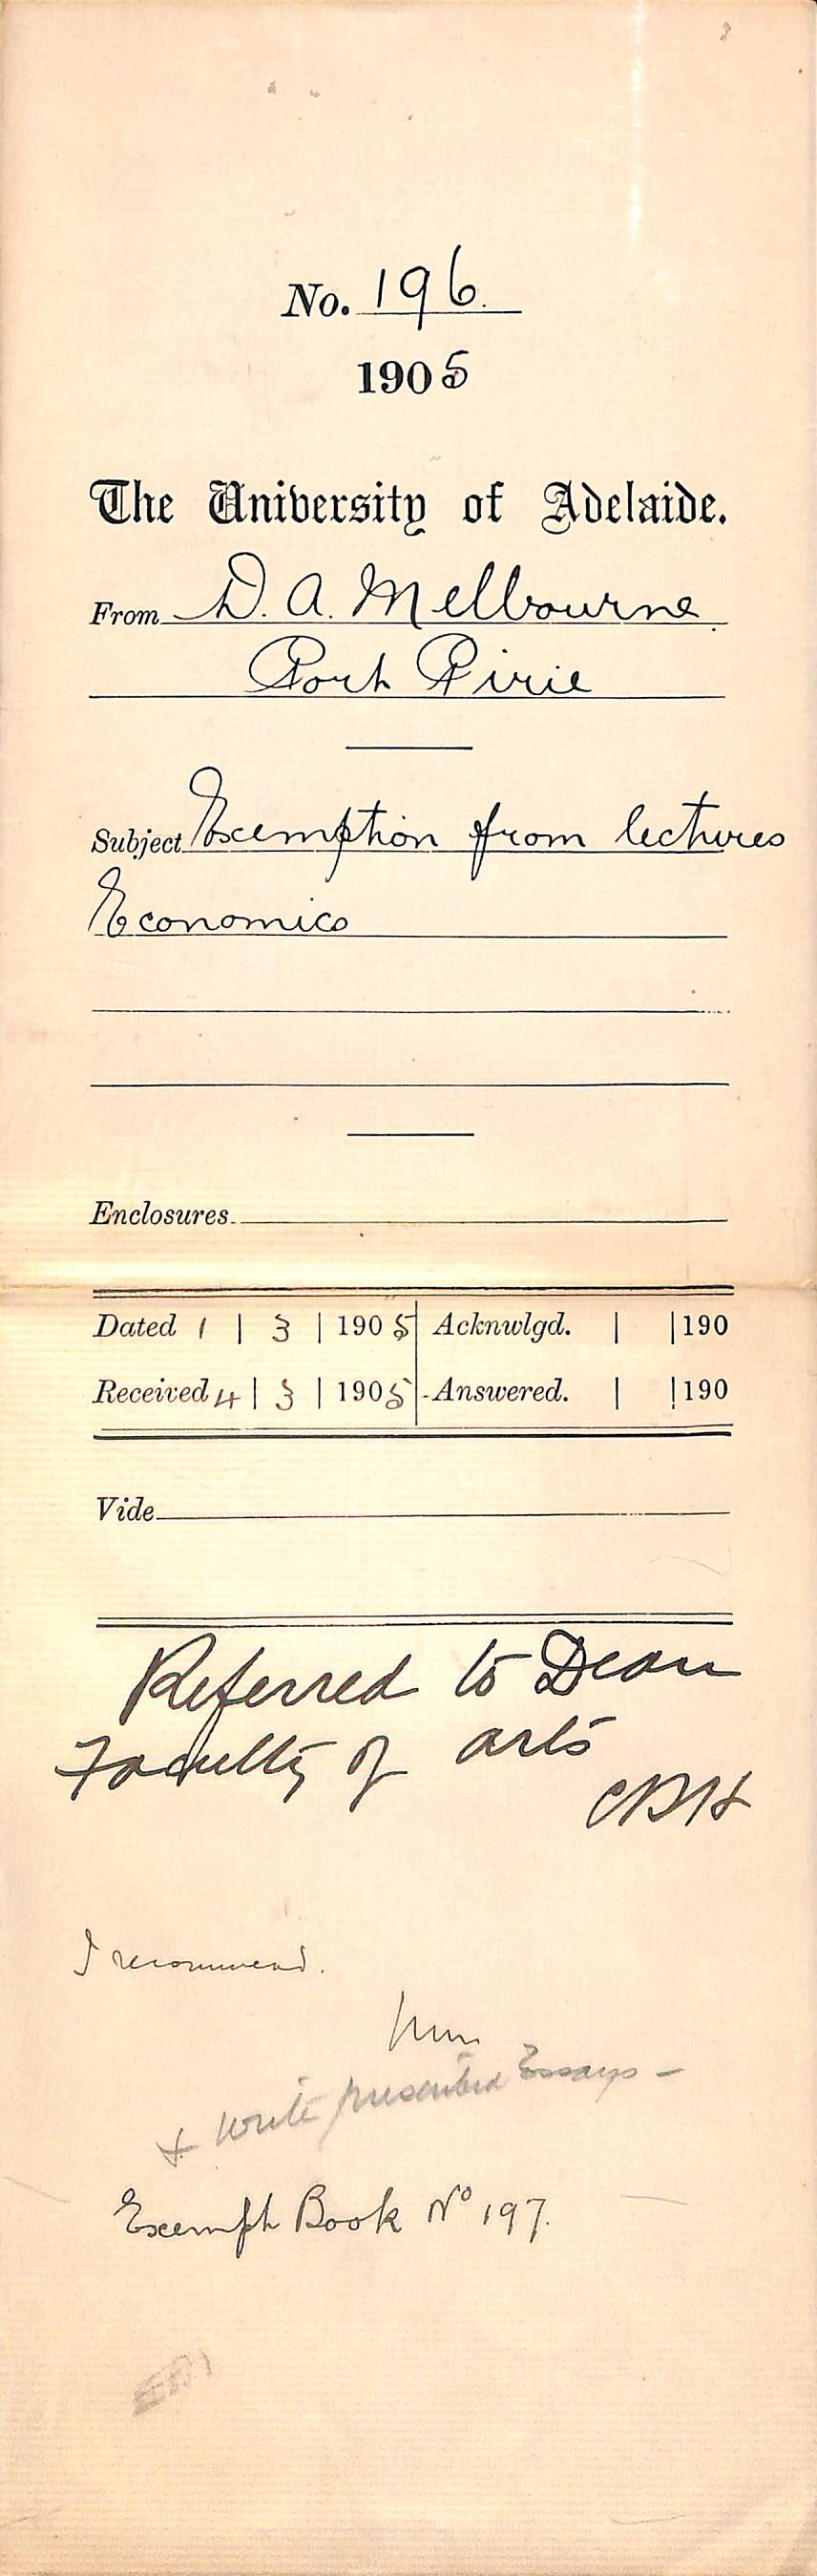 No. 196.
1905
The University of Adelaide.
From D. A. Melbourne.
Port Pirie
Subject Exemption from lectures
Economics
Enclosures
Dated 1 | 3 | 1905 Acknwlgd. | | 190
Received 4 | 3 | 1905 Answered. | | 190
Vide
Referred to Dean
Faculty of Arts
CRH
I recommend.
& write prescribed Essays -
Exempt Book No 197.